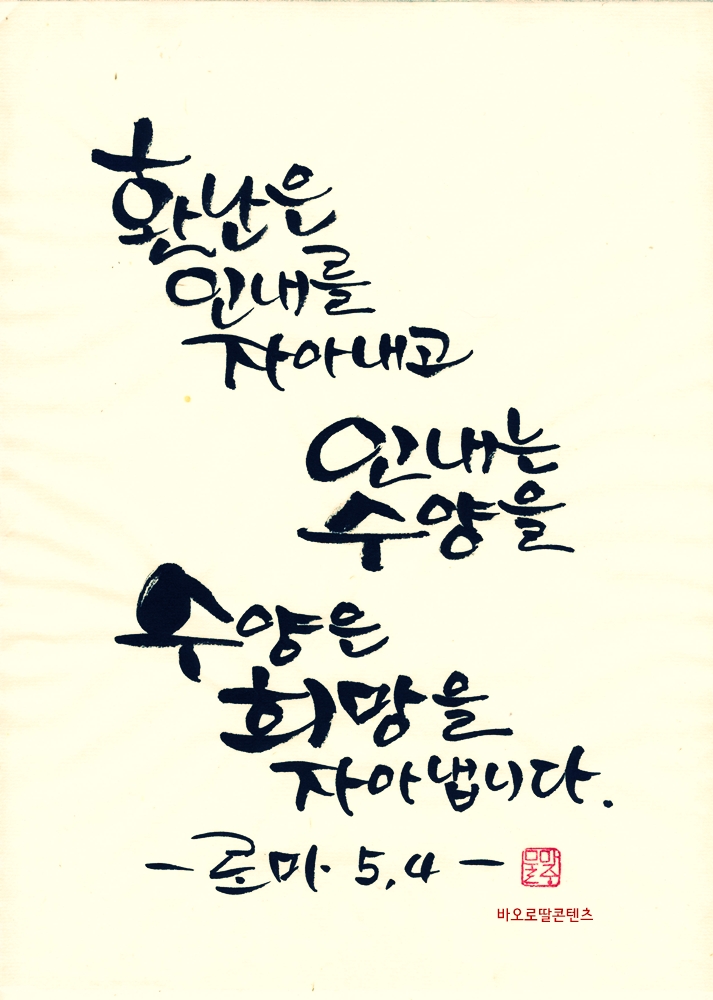 환난은
인내를
자아내고
인내는
수양을
수양은
희망을
자아냅니다.
- 로마. 5,4 -
바오로딸콘텐츠